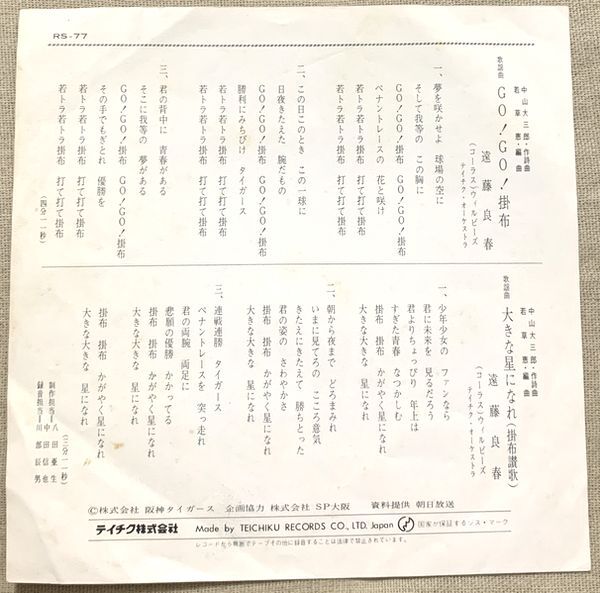 RS-77
歌謡曲
GO!GO!掛布
中山大三郎・作詩曲
若草恵・編曲
遠藤良春
(コーラス)ウィルビーズ
テイチク・オーケストラ
一、夢を咲かせよ 球場の空に
そして我等の この胸に
GO!GO!掛布 GO!GO!掛布
ペナントレースの 花と咲け
若トラ若トラ掛布 打て打て掛布
若トラ若トラ掛布 打て打て掛布
二、この日このとき この一球に
日夜きたえた 腕だもの
GO!GO!掛布 GO!GO!掛布
勝利にみちびけ タイガース
若トラ若トラ掛布 打て打て掛布
若トラ若トラ掛布 打て打て掛布
三、君の背中に 青春がある
そこに我等の 夢がある
GO!GO!掛布 GO!GO!掛布
その手でもぎとれ 優勝を
若トラ若トラ掛布 打て打て掛布
若トラ若トラ掛布 打て打て掛布
(四分一一秒)
歌謡曲
大きな星になれ(掛布讃歌)
中山大三郎・作詩曲
若草恵・編曲
遠藤良春
(コーラス)ウィルビーズ
テイチク・オーケストラ
一、少年少女の ファンなら
君に未来を 見るだろう
君よりちょっぴり 年上は
すぎた青春 なつかしむ
掛布 掛布 かがやく星になれ
大きな大きな 星になれ
二、朝から夜まで どろまみれ
いまに見てろの こころ意気
きたえにきたえて 勝ちとった
君の姿の さわやかさ
掛布 掛布 かがやく星になれ
大きな大きな 星になれ
三、連戦連勝 タイガース
ペナントレースを 突っ走れ
君の両腕 両足に
悲願の優勝 かかってる
掛布 掛布 かがやく星になれ
大きな大きな 星になれ
掛布 掛布 かがやく星になれ
大きな大きな 星になれ
(三分一一秒)
制作担当=八田亜生
中田信也
録音担当=川部辰男
©株式会社 阪神タイガース 企画協力 株式会社 SP大阪 資料提供 朝日放送
テイチク株式会社 Made by TEICHIKU RECORDS CO., LTD. Japan 国家が保証するシス・マーク
レコードから無断でテープその他に録音することは法律で禁止されています。